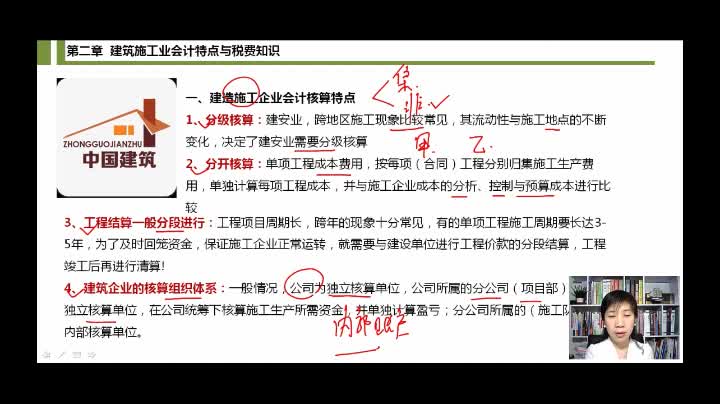 第二章 建筑施工业会计特点与税费知识
ZHONGGUOJIANZHU
中国建筑
一、建造施工企业会计核算特点
集
非
1、分级核算：建安业，跨地区施工现象比较常见，其流动性与施工地点的不断
变化，决定了建安业需要分级核算
甲 乙
2、分开核算：单项工程成本费用，按每项（合同）工程分别归集施工生产费
用，单独计算每项工程成本，并与施工企业成本的分析、控制与预算成本进行比
较
3、工程结算一般分段进行：工程项目周期长，跨年的现象十分常见，有的单项工程施工周期要长达3-
5年，为了及时回笼资金，保证施工企业正常运转，就需要与建设单位进行工程价款的分段结算，工程
竣工后再进行清算!
4、建筑企业的核算组织体系：一般情况，公司为独立核算单位，公司所属的分公司（项目部）
独立核算单位，在公司统筹下核算施工生产所需资金，并单独计算盈亏；分公司所属的（施工队
内部核算单位。
内部